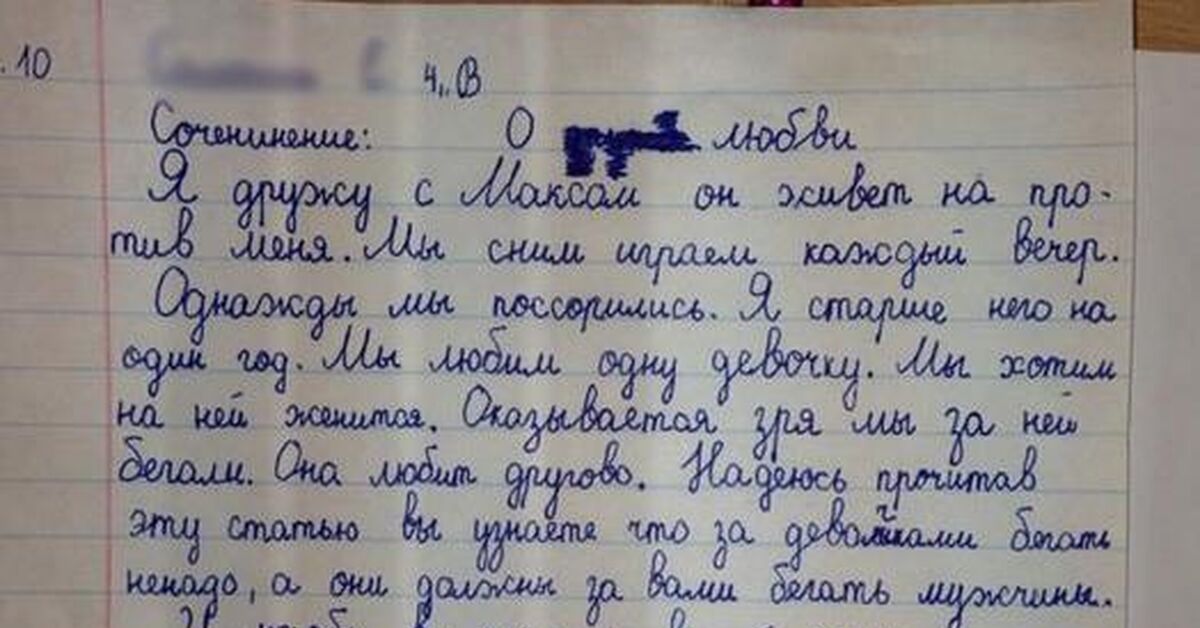 . 10
4 „В
Соченинение: О любви
Я дружу с Максам он живет на про-
тив меня. Мы сним играем каждый вечер.
Однажды мы поссорились. Я старше него на
один год. Мы любим одну девочку. Мы хотим
на ней женится. Оказывается зря мы за ней
бегали. Она любит другово. Надеюсь прочитав
эту статью вы узнаете что за девочками бегать
ненадо, а они должны за вами бегать мужчины.